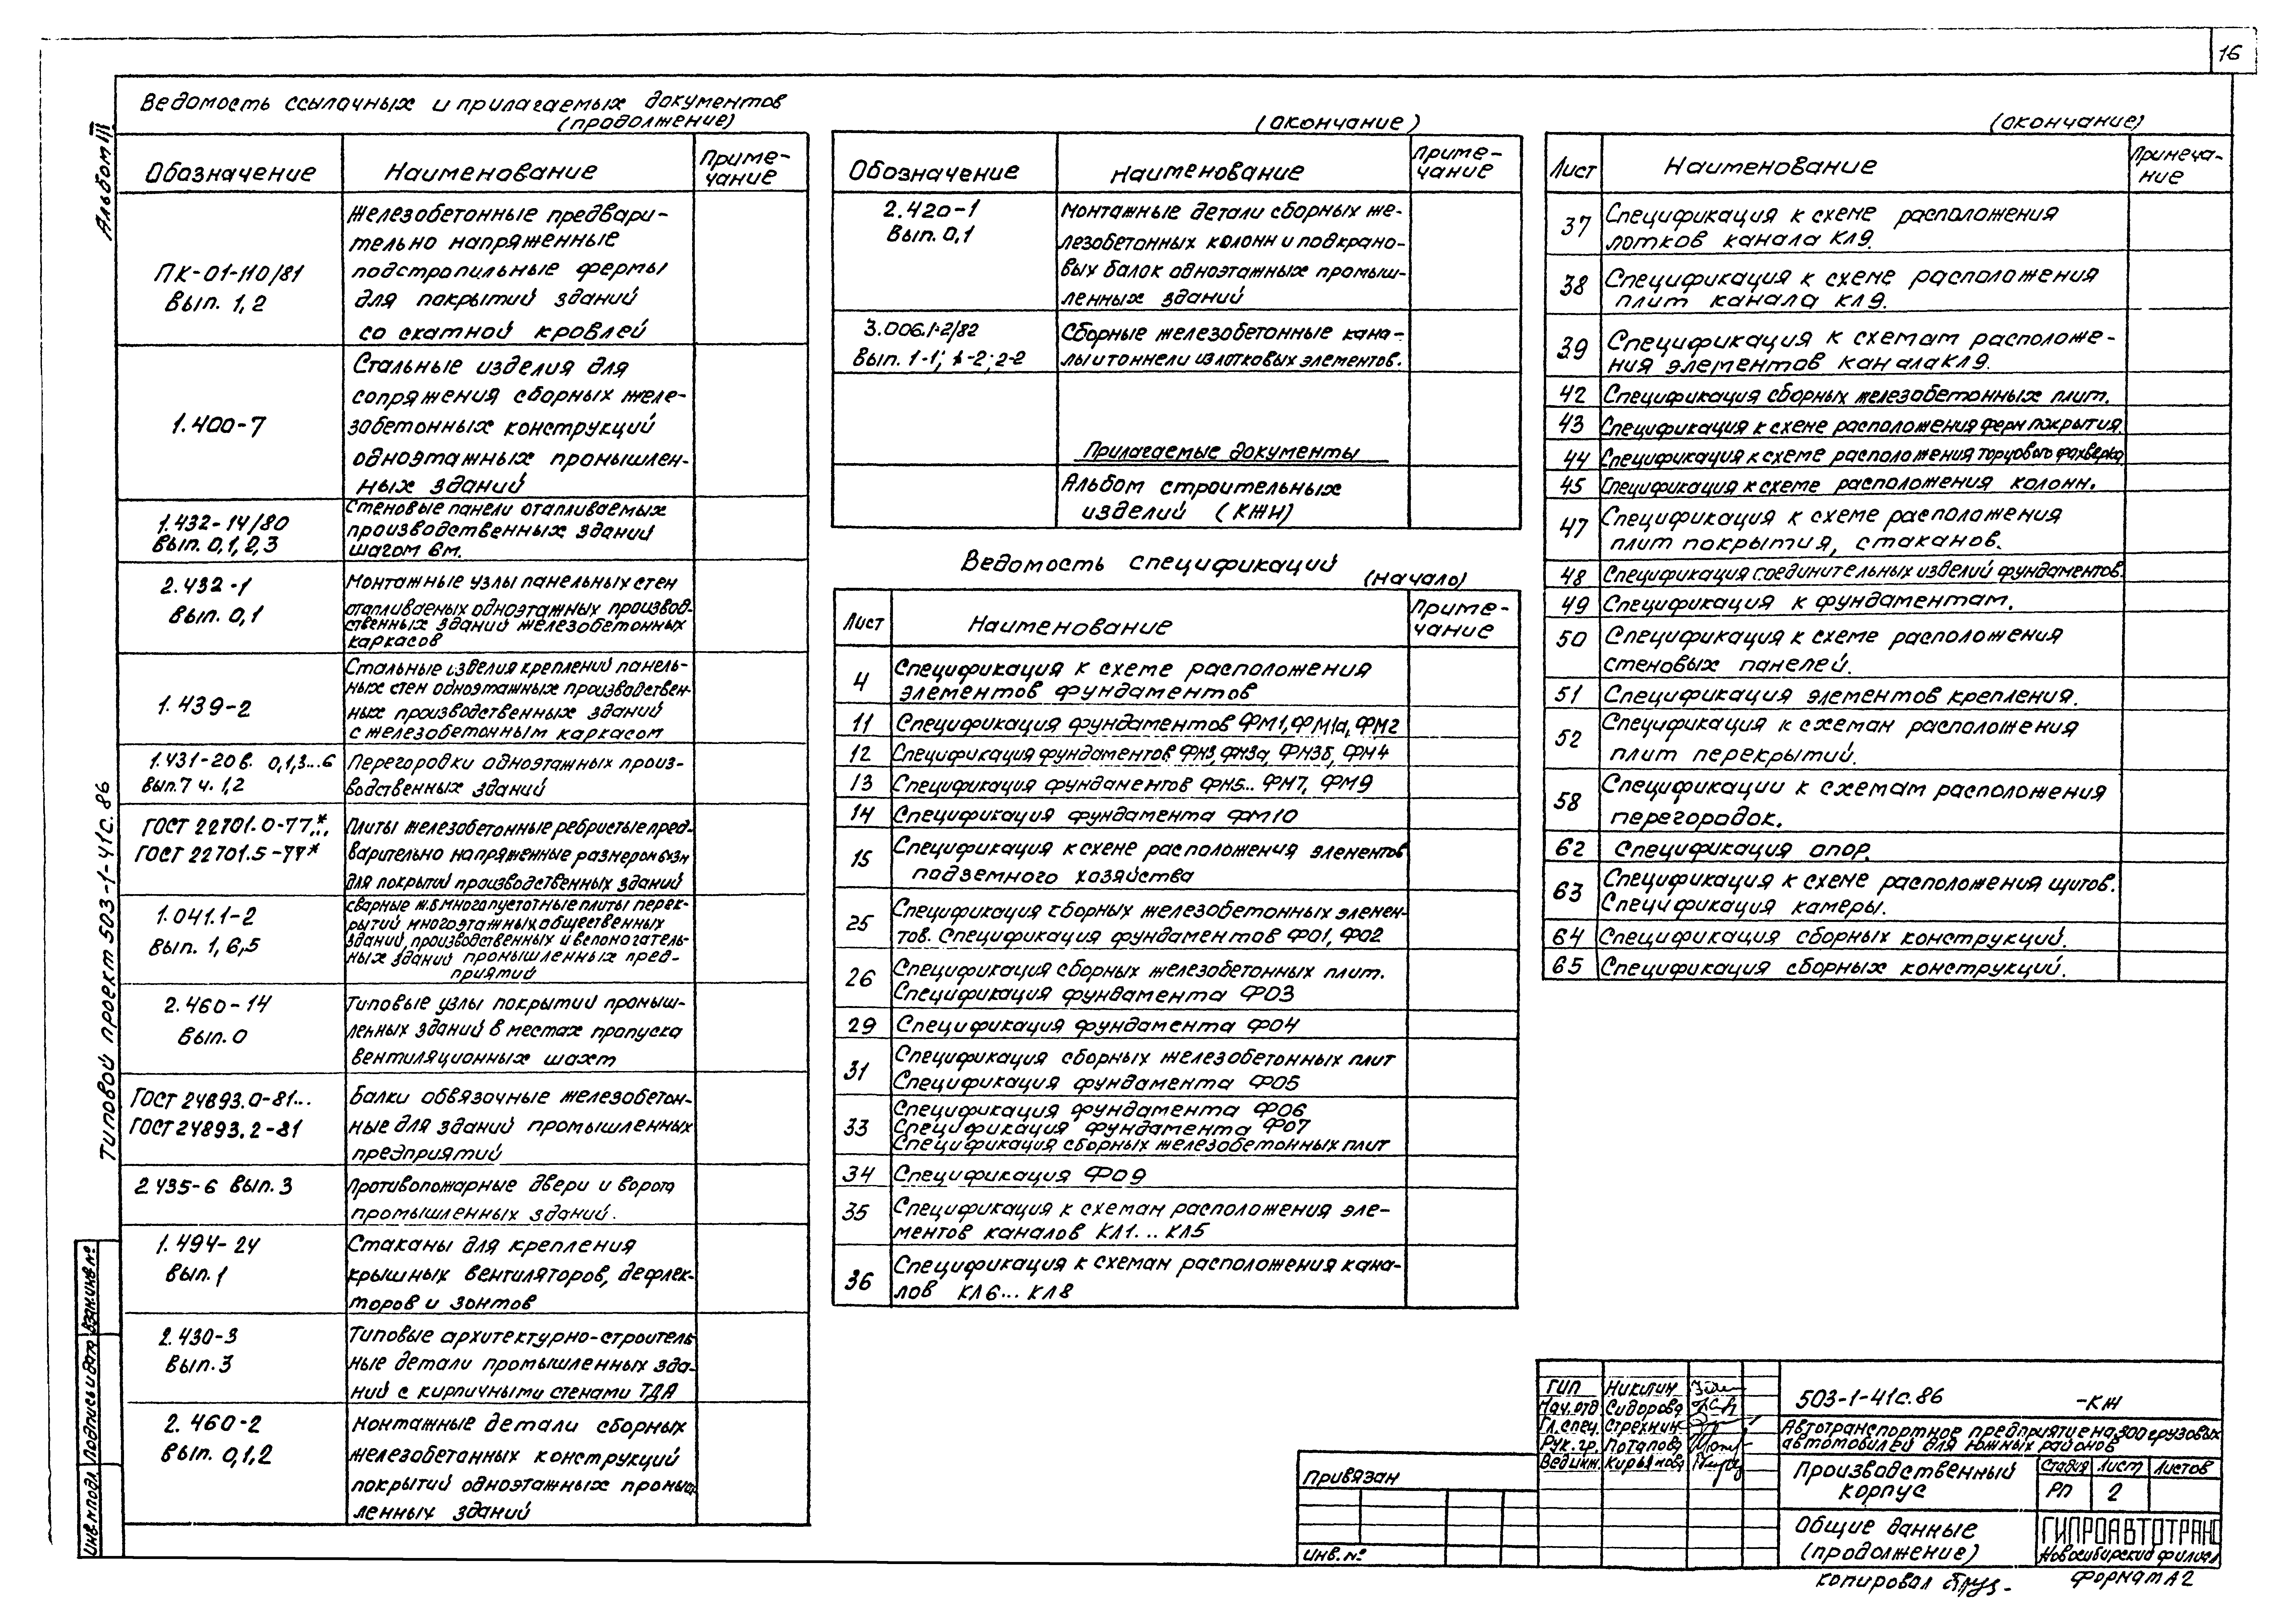 16
Альбом III
Типовой проект 503-1-41с.86
Ведомость ссылочных и прилагаемых документов
(продолжение)
Обозначение
Наименование
Приме-
чание
ПК-01-110/81
Вып. 1, 2
Железобетонные предвари-
тельно напряженные
подстропильные фермы
для покрытий зданий
со скатной кровлей
1.400-7
Стальные изделия для
сопряжения сборных желе-
зобетонных конструкций
одноэтажных промышлен-
ных зданий
1.432-14/80
Вып. 0,1,2,3
Стеновые панели отапливаемых
производственных зданий
шагом 6м.
2.432-1
Вып. 0,1
Монтажные узлы панельных стен
отапливаемых одноэтажных производ-
ственных зданий железобетонных
каркасов
1.439-2
Стальные изделия креплений панель-
ных стен одноэтажных производствен-
ных производственных зданий
с железобетонным каркасом
1.431-20 в. 0,1,3...6
Вып.7 ч. 1,2
Перегородки одноэтажных произ-
водственных зданий
ГОСТ 22701.0-77*...
ГОСТ 22701.5-77*
Плиты железобетонные ребристые пред-
варительно напряженные размером 6х3м
для покрытий производственных зданий
1.041.1-2
Вып. 1, 6,5
Сварные ж.б. многопустотные плиты перек-
рытий многоэтажных общественных
зданий, производственных и вспомогатель-
ных зданий промышленных пред-
приятий
2.460-14
Вып. 0
Типовые узлы покрытий промыш-
ленных зданий в местах пропуска
вентиляционных шахт
ГОСТ 24893.0-81...
ГОСТ 24893.2-81
Балки обвязочные железобетон-
ные для зданий промышленных
предприятий
2.435-6 Вып. 3
Противопожарные двери и ворота
промышленных зданий.
1.494-24
Вып. 1
Стаканы для крепления
крышных вентиляторов, дефлек-
торов и зонтов
2.430-3
Вып. 3
Типовые архитектурно-строитель
ные детали промышленных зда-
ний с кирпичными стенами ТДА
2.460-2
Вып. 0,1,2
Монтажные детали сборных
железобетонных конструкций
покрытий одноэтажных промыш
ленных зданий
(окончание)
Обозначение
Наименование
Приме-
чание
2.420-1
Вып. 0,1
Монтажные детали сборных же-
лезобетонных колонн и подкрано-
вых балок одноэтажных промыш-
ленных зданий
3.006.1-2/82
Вып. 1-1; 1-2; 2-2
Сборные железобетонные кана-
лы и тоннели из лотковых элементов.
Прилагаемые документы
Альбом строительных
изделий (КЖИ)
Ведомость спецификаций
(начало)
Лист
Наименование
Приме-
чание
4
Спецификация к схеме расположения
элементов фундаментов
11 Спецификация фундаментов ФМ1, ФМ1а, ФМ2
12 Спецификация фундаментов ФМ3, ФМ3а, ФМ3б, ФМ4
13 Спецификация фундаментов ФМ5... ФМ7, ФМ9
14 Спецификация фундамента ФМ10
15
Спецификация к схеме расположения элементов
подземного хозяйства
25
Спецификация сборных железобетонных элемен-
тов. Спецификация фундаментов Ф01, Ф02
26
Спецификация сборных железобетонных плит.
Спецификация фундамента Ф03
29 Спецификация фундамента Ф04
31
Спецификация сборных железобетонных плит
Спецификация фундамента Ф05
33
Спецификация фундамента Ф06
Спецификация фундамента Ф07
Спецификация сборных железобетонных плит
34 Спецификация Ф09
35
Спецификация к схемам расположения эле-
ментов каналов КЛ1... КЛ5
36
Спецификация к схемам расположения кана-
лов КЛ6... КЛ8
(окончание)
Лист
Наименование
Примеча-
ние
37
Спецификация к схеме расположения
лотков канала КЛ9.
38
Спецификация к схеме расположения
плит канала КЛ9.
39
Спецификация к схемам расположе-
ния элементов канала КЛ9.
42 Спецификация сборных железобетонных плит.
43 Спецификация к схеме расположения ферм покрытия.
44 Спецификация к схеме расположения торцового фахверка
45 Спецификация к схеме расположения колонн.
47
Спецификация к схеме расположения
плит покрытия, стаканов.
48 Спецификация соединительных изделий фундаментов.
49 Спецификация к фундаментам.
50
Спецификация к схеме расположения
стеновых панелей.
51 Спецификация элементов крепления.
52
Спецификация к схемам расположения
плит перекрытий.
58
Спецификации к схемам расположения
перегородок.
62 Спецификация опор.
63
Спецификация к схеме расположения щитов.
Спецификация камеры.
64 Спецификация сборных конструкций.
65 Спецификация сборных конструкций.
Инв.№подл. Подпись и дата Взам.инв.№
Привязан
Инв.№
ГИП Никитин
Нач.отд. Сидорова
Гл.спец. Стрехнин
Рук.гр. Потапова
Вед.инж. Кирьянова
503-1-41с.86 -КЖ
Автотранспортное предприятие на 300 грузовых
автомобилей для южных районов
Производственный
корпус
Стадия Лист Листов
РП 2
Общие данные
(продолжение)
ГИПРОАВТОТРАНС
Новосибирский филиал
Копировал
Формат А2